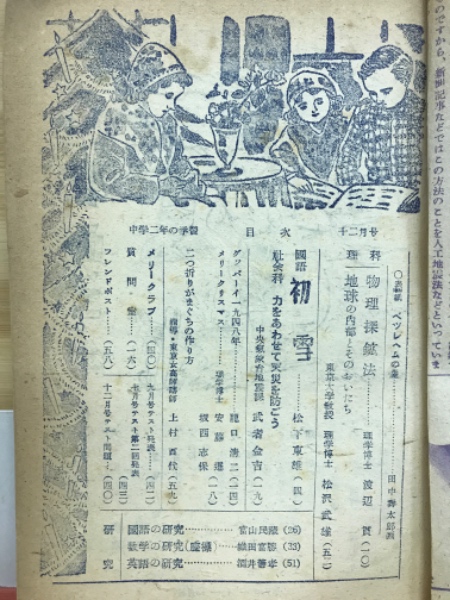 のですから、新聞記事などではこの方法のことを人工地震法などといっていま
中学二年の学習　目次　十二月号
○表紙　ベツレヘムの星　田中壽太郎画
理科　物理探鉱法　理学博士　渡辺貫(一〇)
地球の内部とそのおいたち
東京大学教授　理学博士　松沢武雄(五二)
國語　初雪　松下東雄(四)
社会科　力をあわせて天災を防ごう
中央気象台地震課　武者金吉(一九)
グッバーイ一九四八年　龍口清二(一四)
メリークリスマス　理学博士　安藤
坂西志保
二つ折りがまぐちの作り方
指導・東京女高師講師　上村百代(五九)
メリークラブ(四〇)
質問室(一六)
フレンドポスト(五八)
七月号テスト発表(四二)
七月号テスト第二回発表(四三)
十二月号テスト問題(四〇)
研究
國語の研究　富山民蔵(26)
数学の研究　(26)
英語の研究　酒井善孝(51)